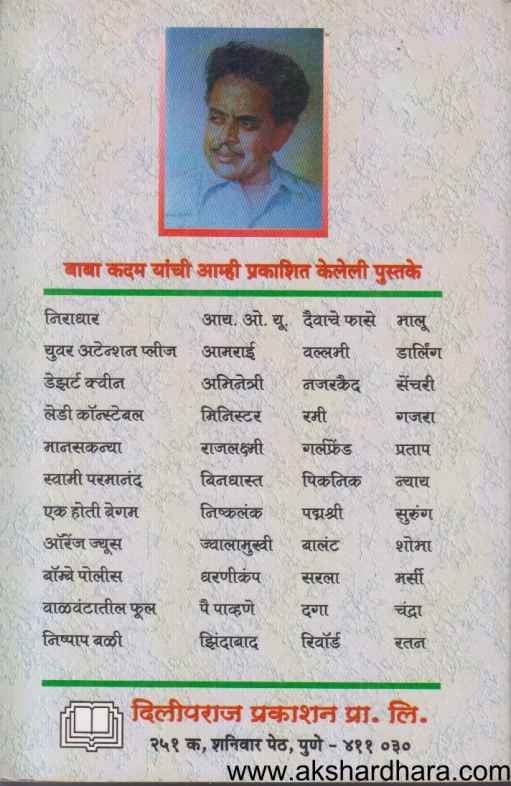 बाबा कदम यांची आम्ही प्रकाशित केलेली पुस्तके
निराधार आय. ओ. यू. दैवाचे फासे मालू
युवर अटेन्शन प्लीज आमराई वल्लभी डार्लिंग
डेझर्ट क्वीन अभिनेत्री नजरकैद सेंचरी
लेडी कॉन्स्टेबल मिनिस्टर रमी गजरा
मानसकन्या राजलक्ष्मी गर्लफ्रेंड प्रताप
स्वामी परमानंद बिनधास्त पिकनिक न्याय
एक होती बेगम निष्कलंक पद्मश्री सुरुंग
ऑरेंज ज्यूस ज्वालामुखी बालंट शोभा
बॉम्बे पोलीस धरणीकंप सरला मर्सी
वाळवंटातील फूल पै पाव्हणे दगा चंद्रा
निष्पाप बळी झिंदाबाद रिवॉर्ड रतन
दिलीपराज प्रकाशन प्रा. लि.
२५१ क, शनिवार पेठ, पुणे - ४११ ०३०
www.akshardhara.com